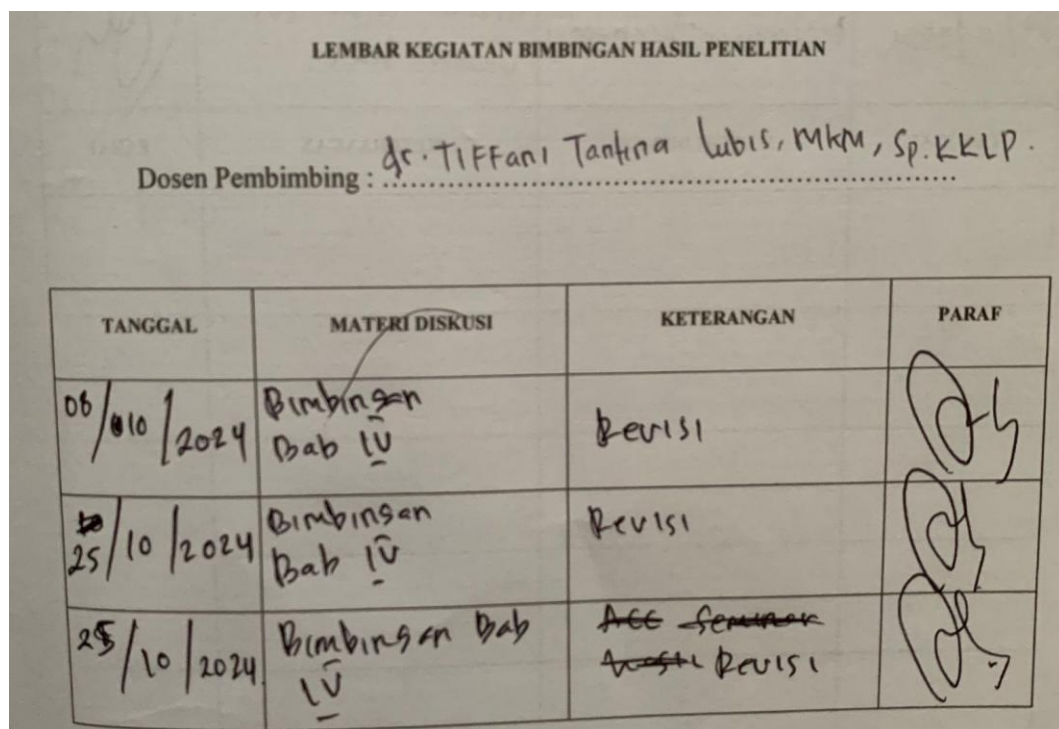 LEMBAR KEGIATAN BIMBINGAN HASIL PENELITIAN
Dosen Pembimbing : dr. Tiffani Tantina Lubis, MKM, Sp.KKLP.
TANGGAL MATERI DISKUSI KETERANGAN PARAF
08/010/2024 Bimbingan Revisi
Bab IV
25/10/2024 Bimbingan Revisi
Bab IV
25/10/2024 Bimbingan Bab ACC Seminar
IV Hasil Revisi